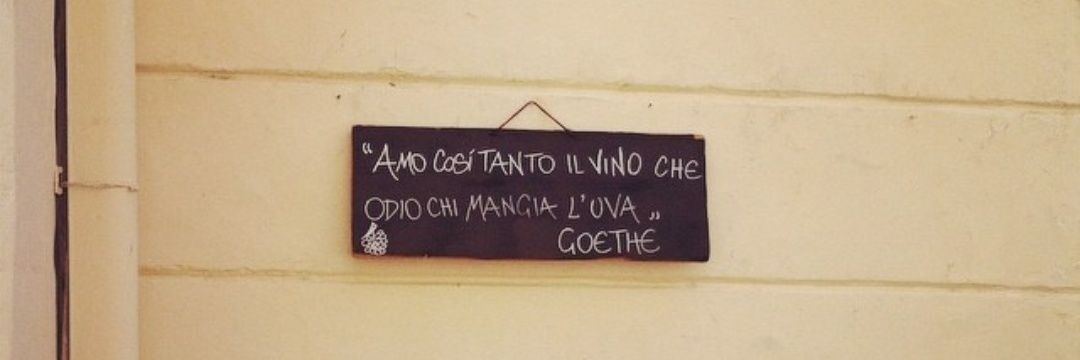 “AMO COSÍ TANTO IL VINO CHE
ODIO CHI MANGIA L'UVA „
GOETHE